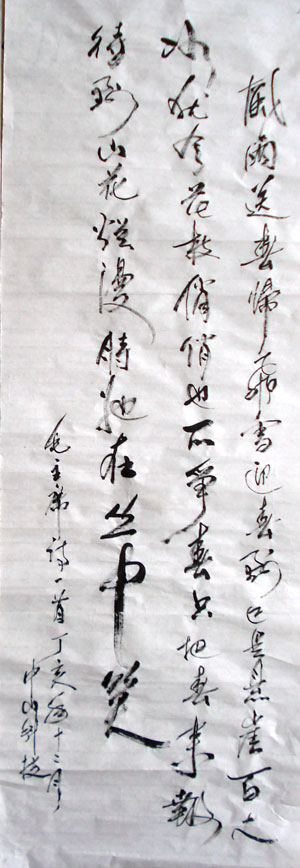 風雨送春歸飛雪迎春到已是悬崖百丈
冰犹有花枝俏俏也不爭春只把春来報
待到山花爛漫時她在丛中笑
毛主席詩一首丁亥年十二月
中山